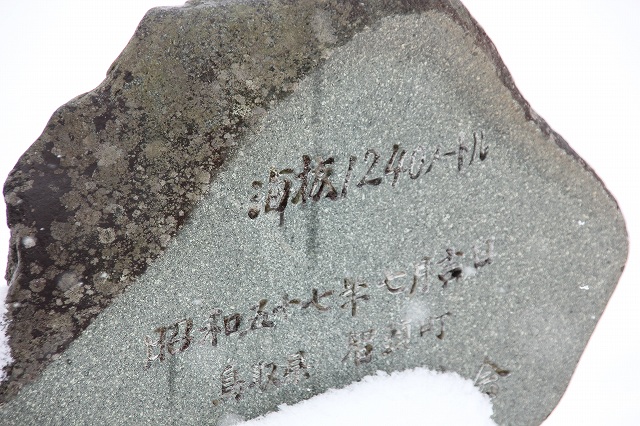 海抜1240メートル
昭和五十七年七月吉日
鳥取県 町
会